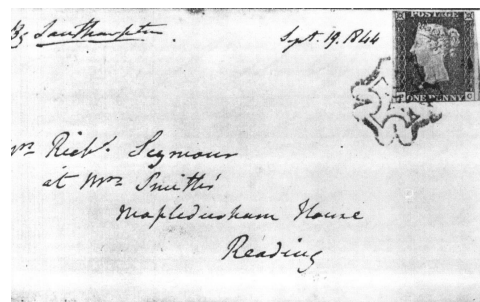 By Southampton Sept. 19. 1844
POSTAGE
ONE PENNY
Mr Richd. Seymour
at Mrs Smith's
Mapledurham House
Reading